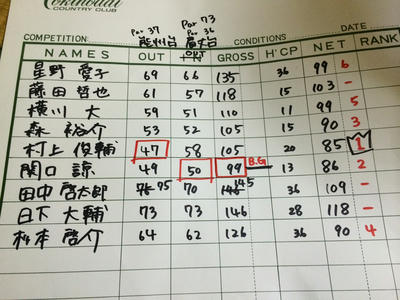 COUNTRY CLUB
Par 37 Par 73
Par 36
COMPETITION: CONDITIONS DATE
NAMES OUT OUT GROSS H'CP NET RANK
星野 愛子 69 66 135 36 99 6
藤田 哲也 61 57 118 15 103 -
横川 大 59 51 110 11 99 5
森 裕介 53 52 105 15 90 3
村上 俊輔 47 58 105 20 85 1
関口 諒 49 50 99 B.G 13 86 2
田中 啓太郎 95 70 145 36 109 -
日下 大輔 73 73 146 28 118 -
杉本 啓介 64 62 126 36 90 4